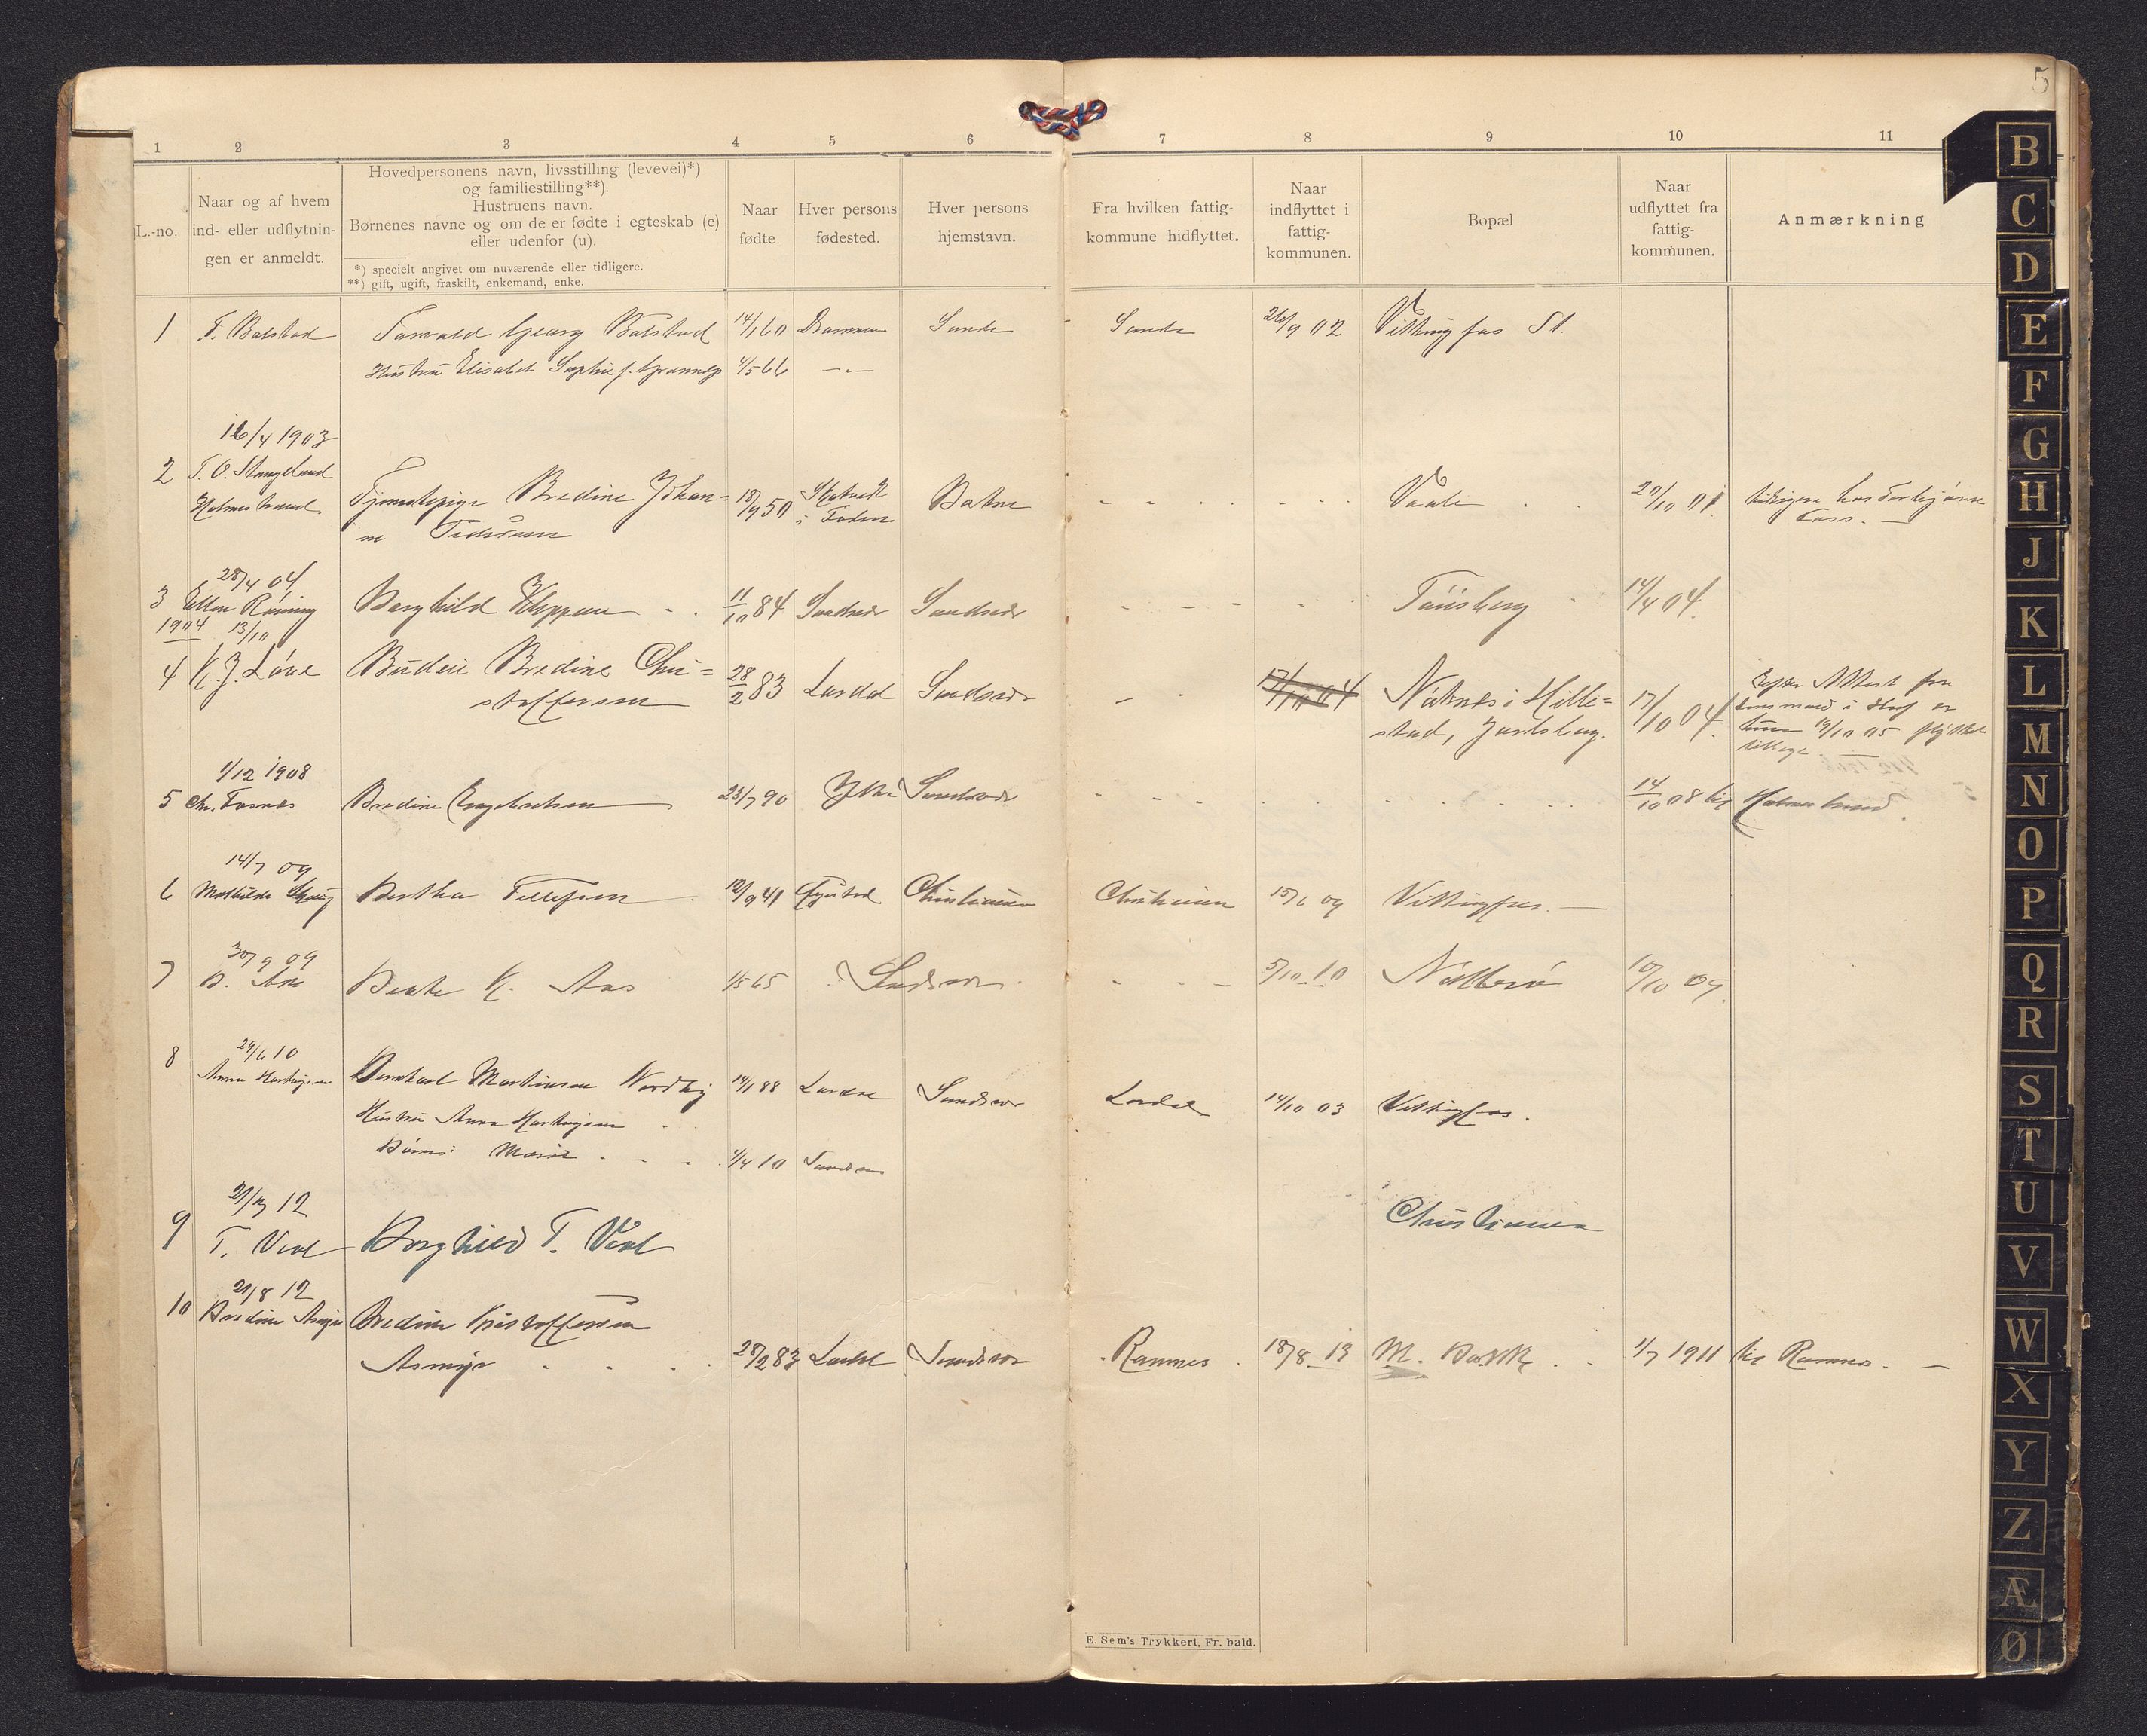 5
1 2 3 4 5 6 7 8 9 10 11
L.-no.
Naar og af hvem
ind- eller udflytnin-
gen er anmeldt.
Hovedpersonens navn, livsstilling (levevei)*)
og familiestilling**).
Hustruens navn.
Børnenes navne og om de er fødte i egteskab (e)
eller udenfor (u).
*) specielt angivet om nuværende eller tidligere.
**) gift, ugift, fraskilt, enkemand, enke.
Naar
fødte.
Hver persons
fødested.
Hver persons
hjemstavn.
Fra hvilken fattig-
kommune hidflyttet.
Naar
indflyttet i
fattig-
kommunen.
Bopæl
Naar
udflyttet fra
fattig-
kommunen.
Anmærkning
1 T. Balstad Torvald Georg Balstad 14/1 60 Drammen Sande Sande 26/9 02 Vittingfos St.
Hustru Elisabet Sophie f. 4/5 66 -"-
16/4 1903
2 T. O. Stangeland
Holmestrand
Tjenestepige Bredine Johan=
ne
18/9 50
Botne
Vaale
tidligere hos
Foss.
28/4 04
3 Ellen Borghild 11/10 84 Sandsvær Sandsvær Tönsberg 14/4 04.
1904 13/10
4 K. J. Löve Budeie Bredine Chri=
stoffersen
28/2 83 Lardal Sandsvær
17/10 04
i Hille=
stad, Jarlsberg.
17/10 04.
Efter Attest fra
lensmand i Hof er
19/10 05 flyttet
tilbage.
1/12 1908
5 Chr. Bredine Engebretsen 23/7 90 Ytre Sandsvær 14/10 08 til Holmestrand.
14/7 09
6 Mathilde Bertha Tollefsen 12/9 41 Christiania Christiania 15/6 09 Vittingfos.
30/9 09
7 B. Aas Beate K. Aas 1/5 65 Sandsvær 5/10 10 Nötterö 10/10 09.
29/6 10
8 Anna Hartvigsen Bernhard Martinsen 14/1 88 Lardal Sandsvær Lardal 14/10 03 Vittingfos.
Hustru Anna Hartvigsen
Börn: Marie 4/4 10 Sandsvær
21/3 12
9 T. Borghild T. Christiania
21/8 12
10 Bredine Asmyr Bredine Kristoffersen
Asmyr 28/2 83 Lardal Sandsvær Ramnes 18/8 13 M. 1/7 1911 til Ramnes.
E. Sem's Trykkeri, Fr. hald.
B
C
D
E
F
G
H
J
K
L
M
N
O
P
Q
R
S
T
U
V
W
X
Y
Z
Æ
Ø